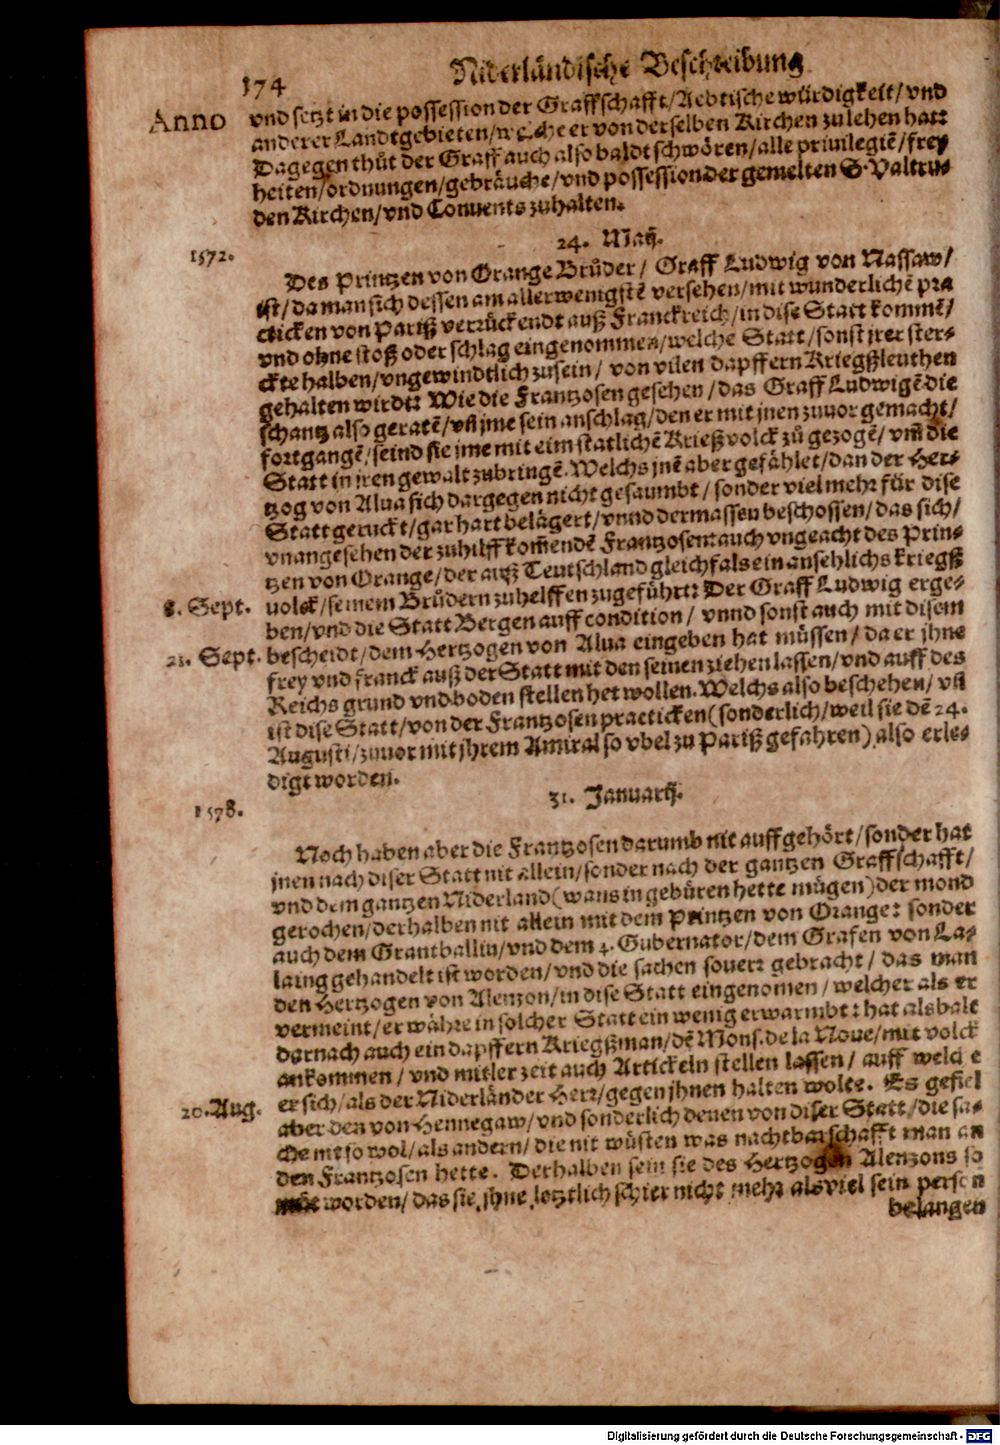 174
Niderländische Beschreibung
Anno
vnd setzt in die possession der Graffschafft/Aebtische würdigkeit/vnd
anderer Landtgebieten/welche er von derselben Kirchen zu lehen hat:
Dagegen thůt der Graff auch also baldt schwören/alle priuilegiē/frey
heiten/ordnungen/gebräuche/vnd possession der gemelten S. Valtru-
den Kirchen/vnd Conuents zuhalten.
24. Maij.
1572.
Des Printzen von Orange Brůder/ Graff Ludwig von Nassaw/
ist/da man sich dessen am allerwenigstē versehen/mit wunderlichē pra
cticken von Pariß verrückendt auß Franckreich/in dise Statt kommē/
vnd ohne stoß oder schlag eingenommen/welche Statt/sonst jrer ster-
ckte halben/vngewindtlich zusein/ von vilen dapffern Kriegßleuthen
gehalten wirdt: Wie die Frantzosen gesehen/das Graff Ludwigē die
schantz also geratē/vñ jme sein anschlag/den er mit jnen zuuor gemacht/
fortgangē/seind sie jme mit eim statlichē Krießvolck zů gezogē/vm̃ die
Statt in jren gewalt zubringē. Welchs jnē aber gefählet/dan der Her-
tzog von Alua sich dargegen nicht gesaumbt/ sonder viel mehr für dise
Statt geruckt/gar hart belägert/vnnd dermassen beschossen/das sich/
vnangesehen der zuhilff kom̃endē Frantzosen: auch vngeacht des Prin-
tzen von Orange/der auß Teutschland gleichfals ein ansehlichs kriegß
8. Sept.
uolck/seinem Brůdern zuhelffen zugeführt: Der Graff Ludwig erge-
ben/vnd die Statt Bergen auff condition/ vnnd sonst auch mit disem
21. Sept.
bescheidt/dem Hertzogen von Alua eingeben hat müssen/ da er jhne
frey vnd franck auß der Statt mit den seinen ziehen lassen/vnd auff des
Reichs grund vnd boden stellen het wollen. Welchs also beschehen/ vñ
ist dise Statt/von der Frantzosen practicken (sonderlich/weil sie dē 24.
Augusti/zuuor mit jhrem Amiral so vbel zu Pariß gefahren) also erle-
digt worden.
31. Januarij.
1578.
Noch haben aber die Frantzosen darumb nit auffgehört/sonder hat
jnen nach diser Statt nit allein/sonder nach der gantzen Graffschafft/
vnd dem gantzen Niderland (wans in gebüren hette mügen) der mond
gerochen/derhalben nit allein mit dem Printzen von Orange: sonder
auch dem Granthallin/vnd dem 4. Gubernator/dem Grafen von La-
laing gehandelt ist worden/vnd die sachen souerr gebracht/ das man
den Hertzogen von Alenzon/in dise Statt eingenomen/welcher als er
vermeint/er währe in solcher Statt ein wenig erwarmbt: hat als balt
darnach auch ein dapffern Kriegßman/dē Mons. de la Noue/mit volck
ankommen/ vnd mitler zeit auch Artickeln stellen lassen/ auff welche
er sich/als der Niderländer Herr/gegen jhnen halten wolte. Es gefiel
20. Aug.
aber den von Hennegaw/vnd sonderlich denen von diser Statt/die sa-
che nit so wol/als andern/die nit wüsten was nachtbarschafft man an
den Frantzosen hette. Derhalben sein sie des Hertzogen Alenzons so
müt worden/das sie jhne letztlich schier nicht mehr als viel sein person
belangen
Digitalisierung gefördert durch die Deutsche Forschungsgemeinschaft - DFG